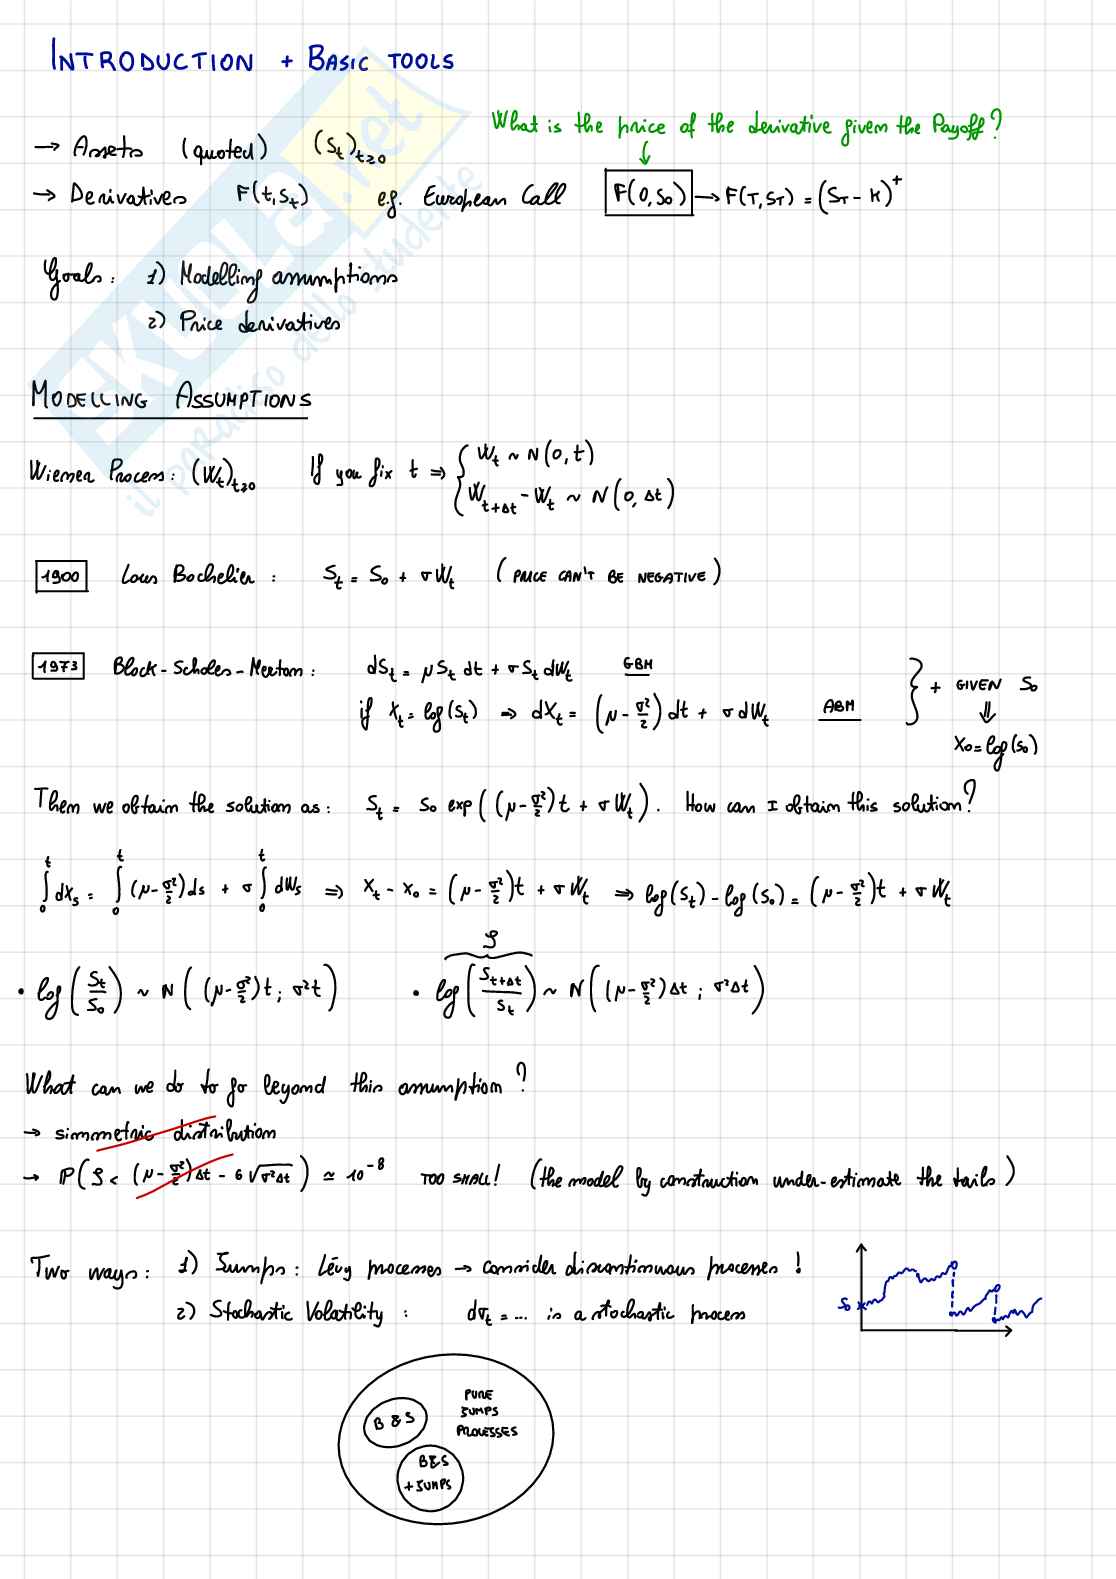 INTRODUCTION + BASIC TOOLS
What is the price of the derivative given the Payoff?
→ Assets (quoted) (S_t)_{t≥0}
→ Derivatives F(t,S_t) e.g. European Call F(0,S_0) → F(T,S_T) = (S_T - K)^+
Goals: 1) Modelling assumptions
2) Price derivatives
MODELLING ASSUMPTIONS
Wiener Process: (W_t)_{t≥0} If you fix t ⇒ { W_t ~ N(0,t)
W_{t+Δt} - W_t ~ N(0,Δt)
1900 Louis Bachelier: S_t = S_0 + σW_t (PRICE CAN'T BE NEGATIVE)
1973 Black-Scholes-Merton: dS_t = μS_t dt + σS_t dW_t GBM } + GIVEN S_0
if X_t = log(S_t) ⇒ dX_t = (μ - σ²/2) dt + σ dW_t ABM ⇓
X_0 = log(S_0)
Then we obtain the solution as: S_t = S_0 exp((μ-σ²/2)t + σW_t). How can I obtain this solution?
∫_0^t dX_s = ∫_0^t (μ-σ²/2)ds + σ∫_0^t dW_s ⇒ X_t - X_0 = (μ-σ²/2)t + σW_t ⇒ log(S_t) - log(S_0) = (μ-σ²/2)t + σW_t
• log(S_t/S_0) ~ N((μ-σ²/2)t; σ²t) • log(S_{t+Δt}/S_t) ~ N((μ-σ²/2)Δt; σ²Δt)
What can we do to go beyond this assumption?
→ simmetric distribution
→ P(ρ < (μ-σ²/2)Δt - 6√(σ²Δt)) ≃ 10^{-8} TOO SMALL! (the model by construction under-estimate the tails)
Two ways: 1) Jumps: Lévy processes → consider discontinuous processes!
2) Stochastic Volatility: dσ_t = ... is a stochastic process
S_0
PURE
JUMPS
PROCESSES
B&S
B&S
+JUMPS
SKUOLA.net
il paradiso dello studente